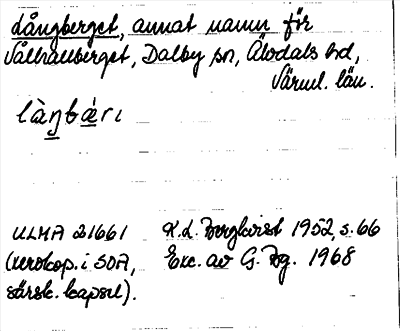 Långberget, annat namn för
Vålhallberget, Dalby sn, Älvdals hd,
Värml. län.
làŋbæ̀rı
ULMA 21661 K.L. Bergkvist 1952, s. 66
(xerokop. i SOA, Exc. av G. Bg. 1968
särsk. kapsel).